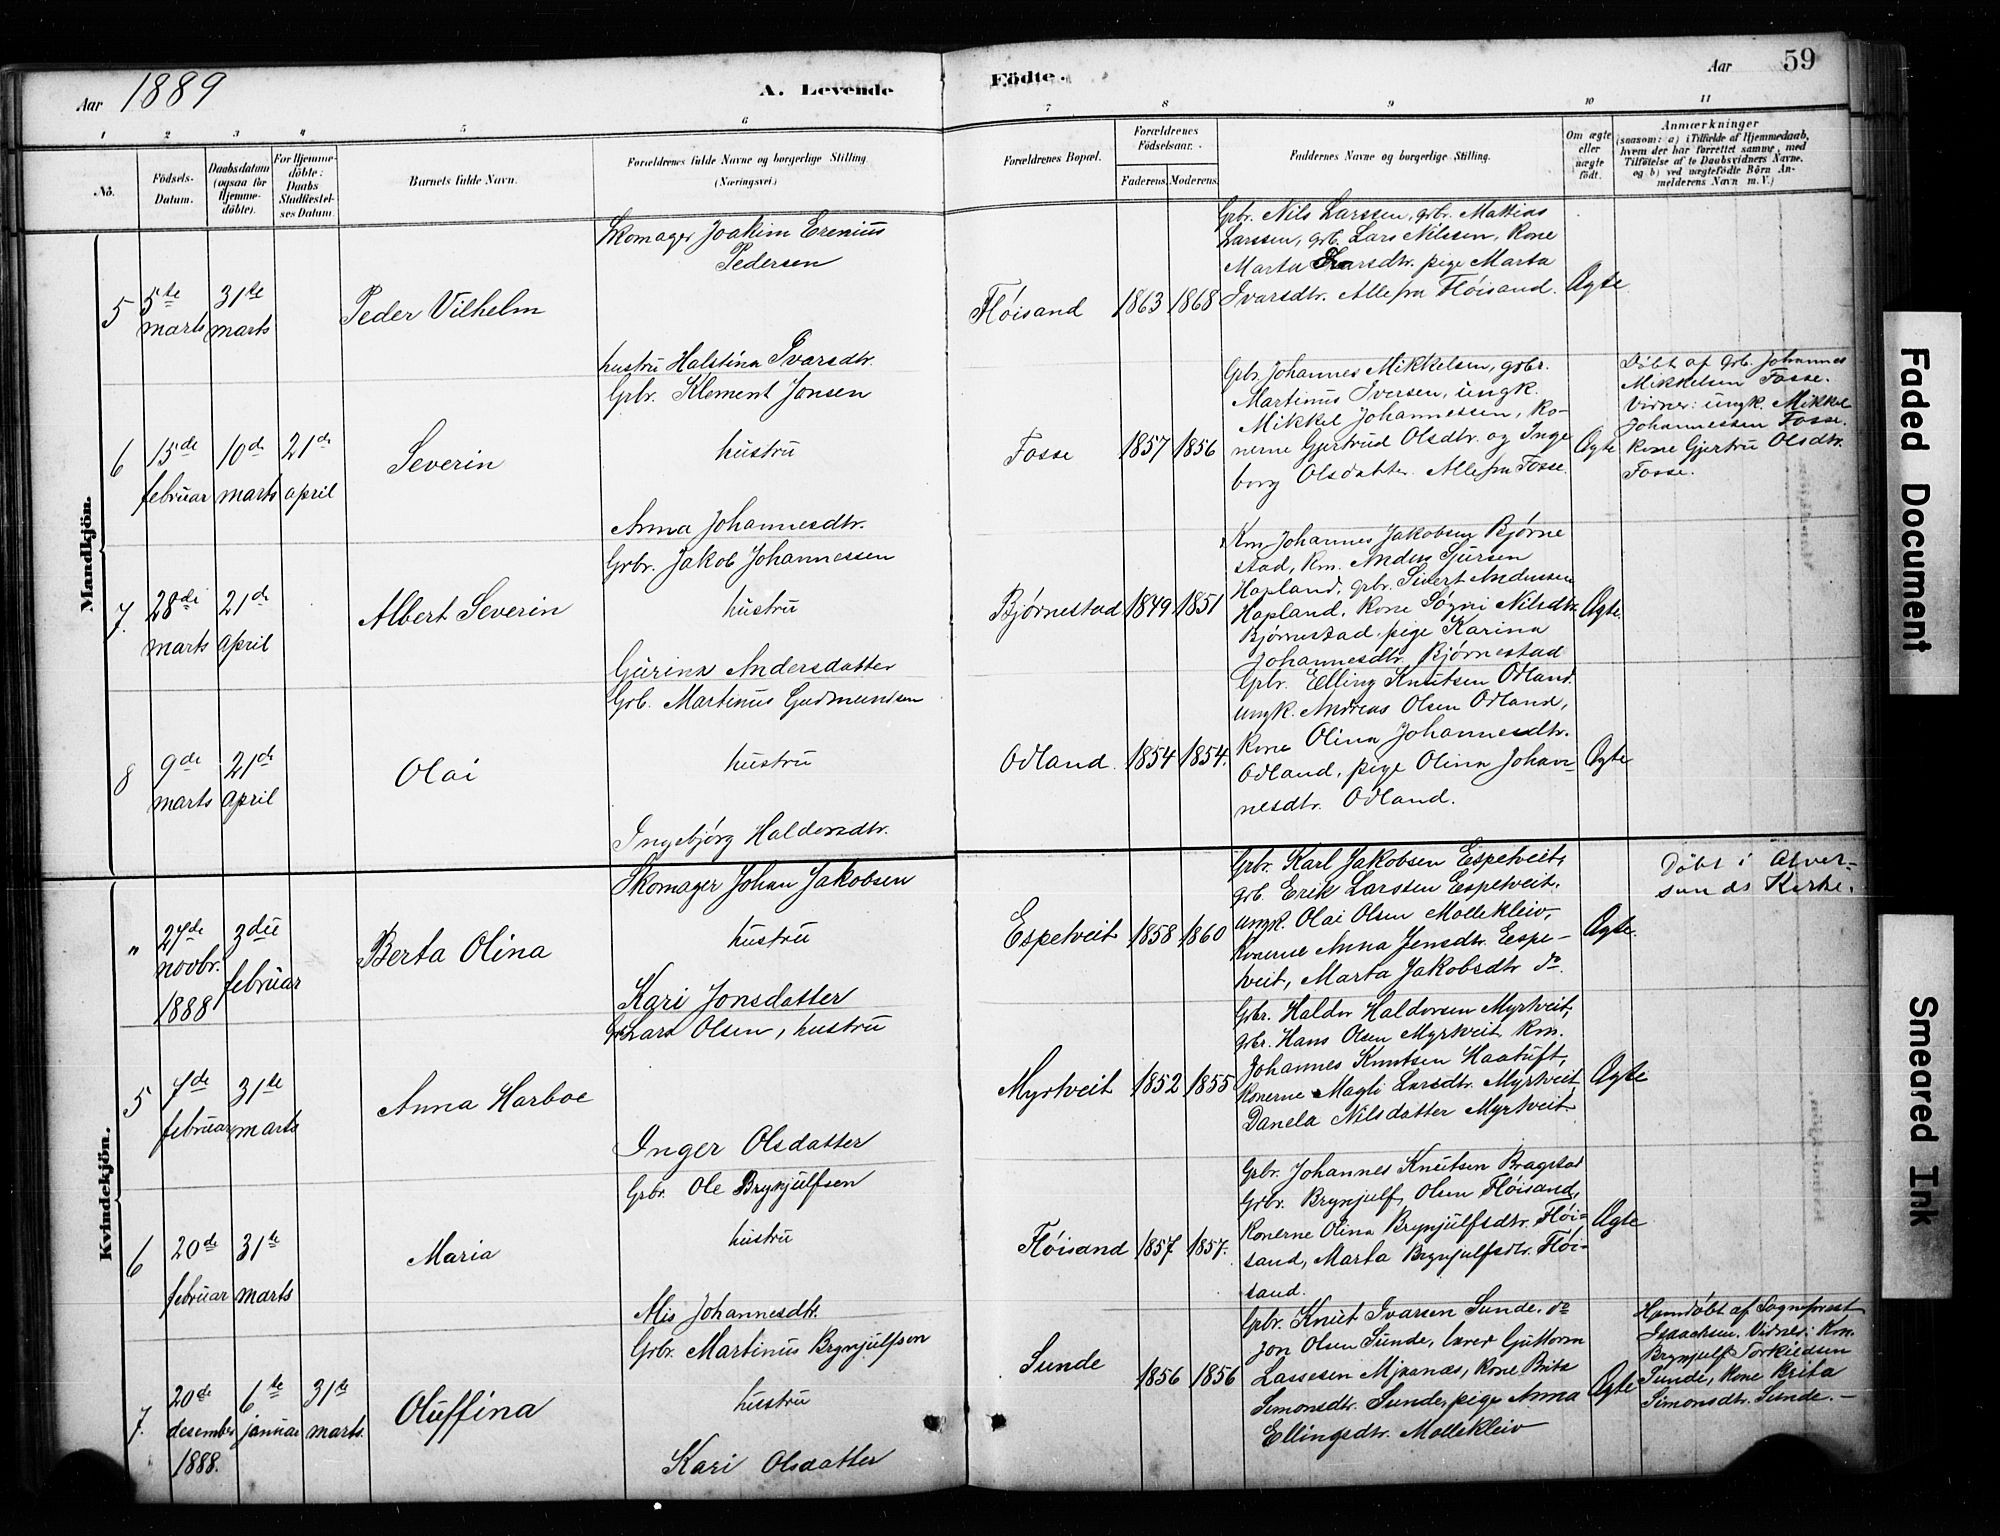 Aar 1889
A. Levende
Födte.
Aar 59
1 2 3 4 5 6 7 8 9 10 11
No.
Födsels-
Datum.
Daabsdatum
(ogsaa for
Hjemme-
döbte).
For Hjemme-
döbte:
Daabs
Stadfæstel-
ses Datum.
Barnets fulde Navn.
Forældrenes fulde Navne og borgerlige Stilling
(Næringsvei.)
Forældrenes Bopæl.
Forældrenes
Födselsaar.
Faderens. Moderens.
Faddernes Navne og borgerlige Stilling.
Om ægte
eller
uægte
födt.
Anmærkninger
(saasom: a) i Tilfælde af Hjemmedaab,
hvem der har forrettet samme, med
Tilföielse af to Daabsvidners Navne,
og b) ved uægtefödte Börn An-
melderens Navn m. V.)
Mandkjön.
5
5te
marts
31te
marts
Peder Vilhelm
Skomager Joakim Erenius
Pedersen
hustru Halstina Ivarsdtr.
Fløisand
1863 1868
Gbr. Nils Larssen, gbr. Mattias
Larssen, gbr. Lars Nilssen, Kone
Marta Larsdtr. pige Marta
Ivarsdtr. Alle fra Fløisand.
Ægte
6
15de
februar
10de
marts
21de
april
Severin
Gbr. Klement Jonsen
hustru
Anna Johannesdtr.
Fosse
1857 1856
Gbr. Johannes Mikkelsen, gbr.
Martinus Iversen, ungk.
Mikkel Johannessen, Ko-
nerne Gjertrud Olsdtr. og Inge
borg Olsdatter. Alle fra Fosse.
Ægte
Døbt af Gbr. Johannes
Mikkelsen Fosse.
Vidner: ungk. Mikkel
Johannessen Fosse.
Kone Gjertru Olsdtr.
Fosse.
7.
28de
marts
21de
april
Albert Severin
Gbr. Jakob Johannessen
hustru
Gurina Andersdatter
Bjørnestad
1849 1851
Km. Johannes Jakobsen Bjørne
stad, Km. Anders Sjursen
Hopland, gbr. Sivert Anderssen
Hopland, Kone Søgni Nilsdtr.
Bjørnestad, pige Karina
Johannesdtr. Bjørnestad
Ægte.
8
9de
marts
21de
april
Olai
Gbr. Martinus Gudmundsen
hustru
Ingebjørg Haldorsdtr.
Odland.
1854 1854.
Gbr. Elling Knutsen Odland.
ungk. Andreas Olsen Odland,
Kone Olina Johannesdtr.
Odland, pige Olina Johan-
nesdtr. Odland.
Ægte
Kvindekjön.
"
27de
novbr.
1888
3die
februar
Berta Olina
Skomager Johan Jakobsen
hustru
Kari Jonsdatter
Espetveit
1858 1860
Gbr. Karl Jakobsen Espetveit,
gbr. Erik Larssen Espetveit.
ungk. Olai Olsen Mollekleiv,
Konerne Anna Jensdtr. Espe-
tveit, Marta Jakobsdtr do.
Ægte.
Døbt i Alver-
sunds Kirke.
5
7de
februar
31te
marts
Anna Harboe
Gbr Lars Olsen, hustru
Inger Olsdatter
Myrtveit
1852 1855
Gbr. Haldor Haldorsen Myrtveit,
gbr. Hans Olsen Myrtveit Km.
Johannes Knutsen Haatuft,
Konerne Magli Larsdtr. Myrtveit
Danela Nilsdatter Myrtveit
Ægte
6
20de
februar
31te
marts
Maria
Gbr. Ole Brynjulfsen
hustru
Alis Johannesdtr.
Fløisand
1857 1857.
Gbr. Johannes Knutsen Bragstad
Gbr. Brynjulf Olsen Fløisand,
Konerne Olina Brynjulfsdtr. Fløi=
sand, Marta Brynjulfsdtr. Fløi-
sand.
Ægte
7.
20de
desember
1888.
6te
januar
31te
marts.
Oluffina
Gbr. Martinus Brynjulfsen
hustru
Kari Olsdatter
Sunde
1856 1856
Gbr. Knut Ivarsen Sunde. do
Jon Olsen Sunde, lærer Guttorm
Lassesen Mjaanæs, Kone Brita
Simonsdtr. Sunde, pige Anna
Ellingsdtr. Mollekleiv
Ægte
Hjemdøbt af Sogneprest
Isaachsen, Vidner: Km.
Brynjulf Torkildsen
Sunde, Kone Brita
Simonsdtr. Sunde. -
Faded Document
Smeared Ink